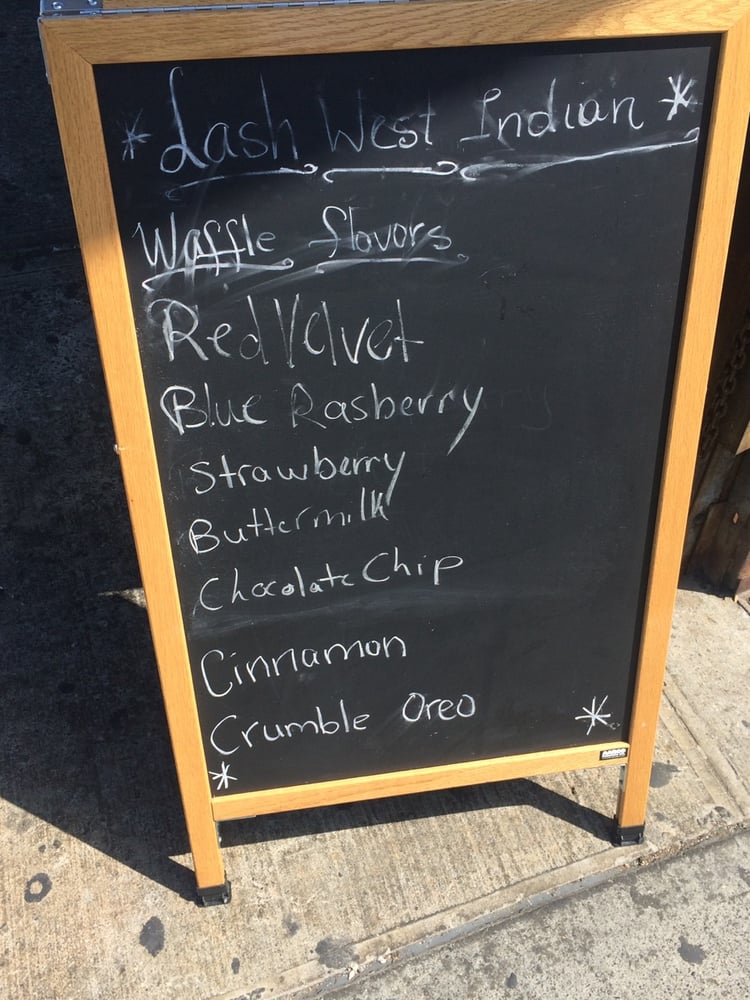 * Lash West Indian *
Waffle flavors
Red Velvet
Blue Rasberry
Strawberry
Buttermilk
Chocolate Chip
Cinnamon
Crumble Oreo *
*